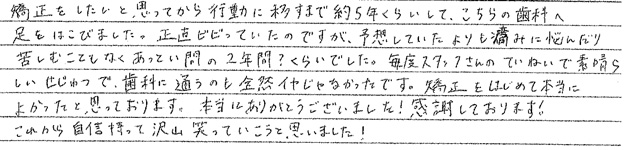 矯正をしたいと思ってから行動に移すまで約5年くらいして、こちらの歯科へ
足をはこびました。正直ビビっていたのですが、予想していたよりも痛みに悩んだり
苦しむこともなくあっという間の2年間?くらいでした。毎度スタッフさんのていねいで素晴ら
しいせじゅつで、歯科に通うのも全然イヤじゃなかったです。矯正をはじめて本当に
よかったと思っております。本当にありがとうございました!感謝しております!
これから自信持って沢山笑っていこうと思いました!